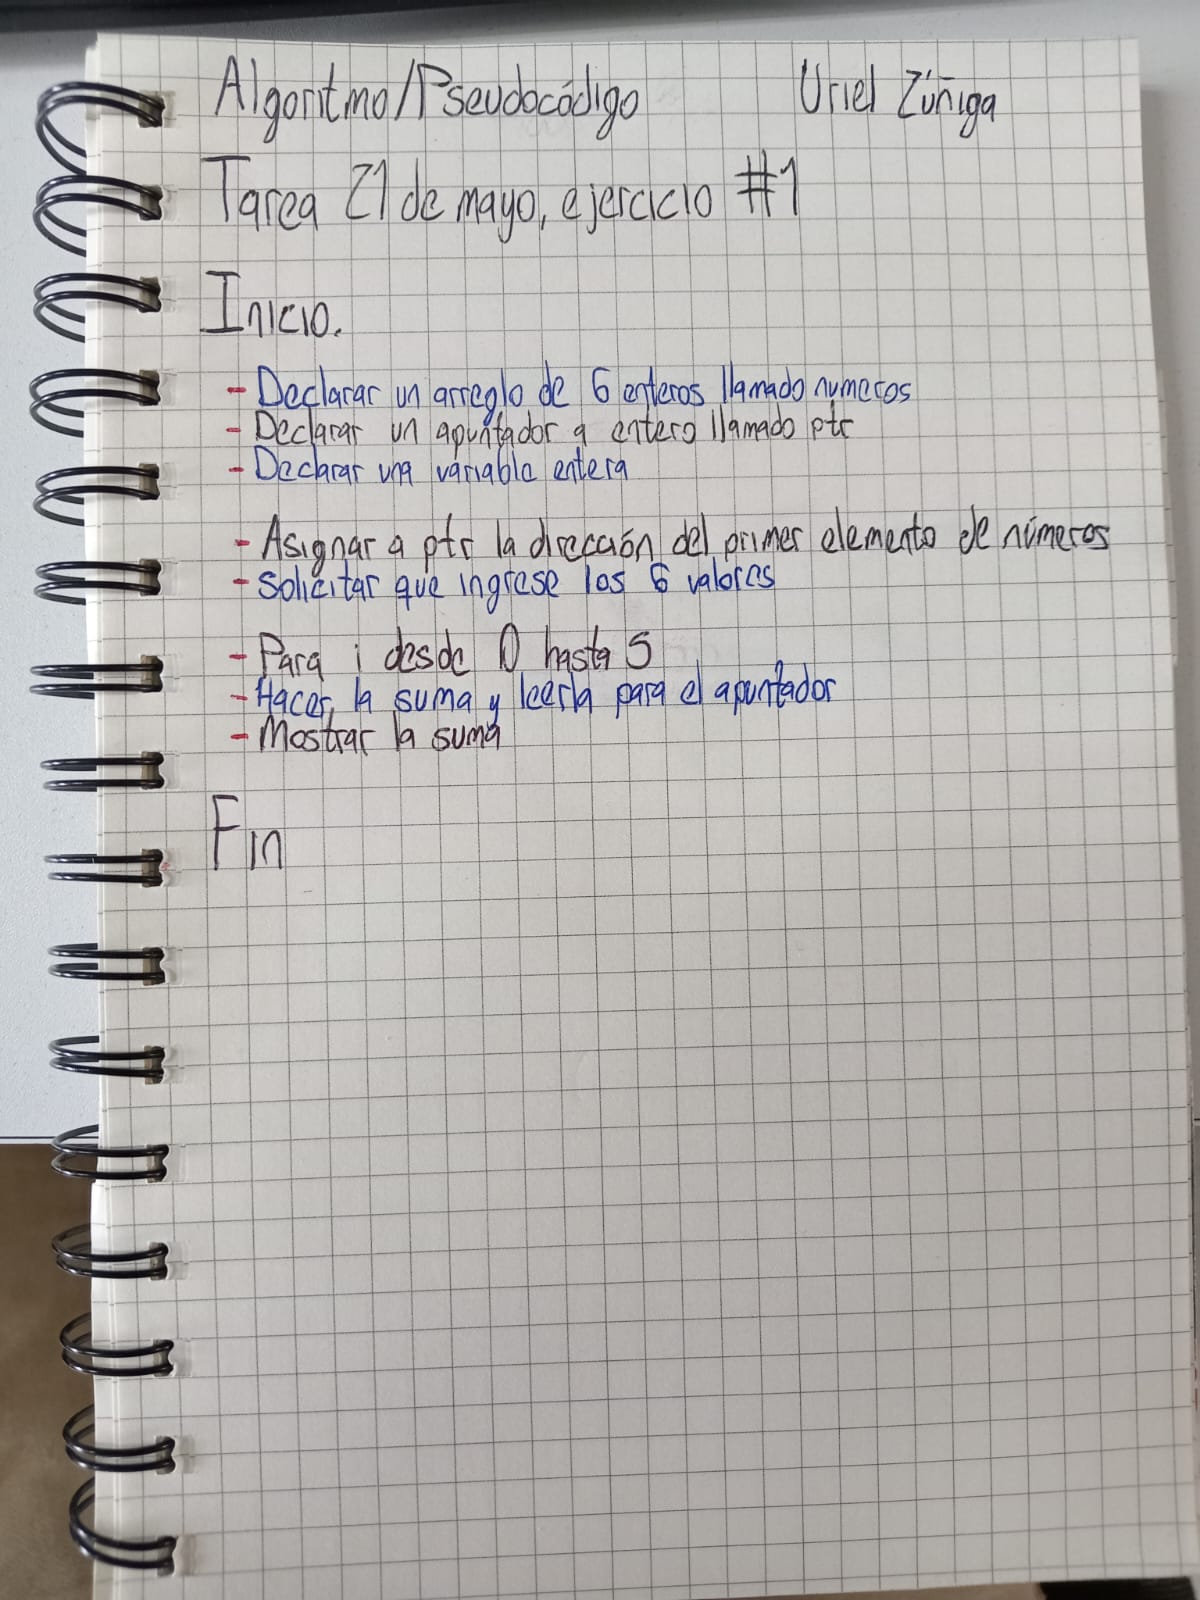 Algoritmo/Pseudocódigo Uriel Zúñiga
Tarea 21 de mayo, ejercicio #1
Inicio.
- Declarar un arreglo de 6 enteros llamado numeros
- Declarar un apuntador a entero llamado ptr
- Declarar una variable entera
- Asignar a ptr la dirección del primer elemento de números
- Solicitar que ingrese los 6 valores
- Para i desde 0 hasta 5
- Hacer la suma y leerla para el apuntador
- Mostrar la suma
Fin